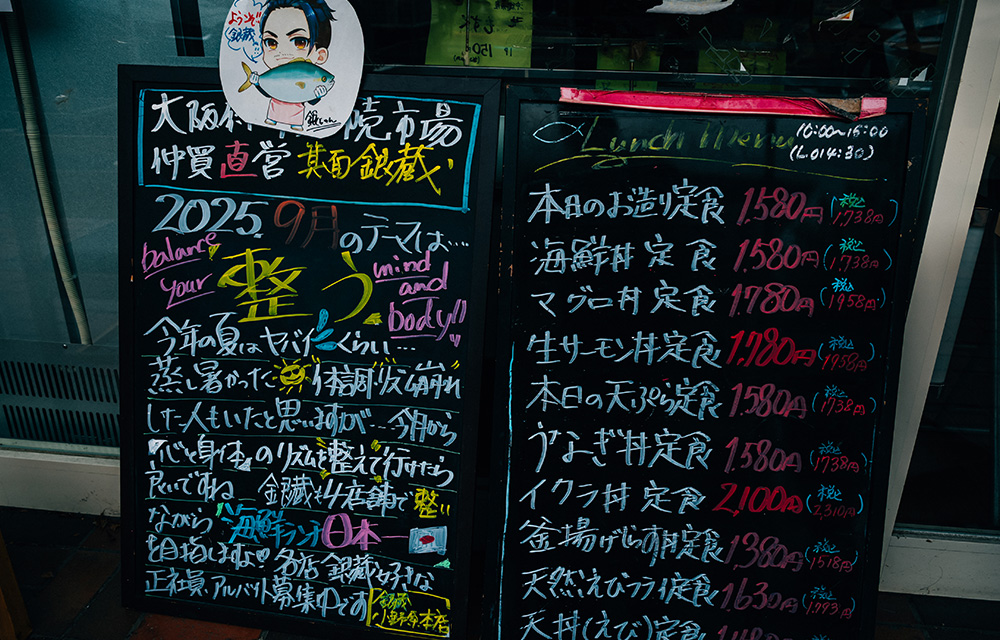 ようこそ!
銀蔵へ
150円
大阪
売市場
仲買直営 箕面銀蔵
2025. 9月のテーマは…
balance your
整う
mind and body!!
今年の夏はヤバイくらい…
蒸し暑かった 体調リズム崩れ
した人もいたと思いますが…今月から
『心と身体』のリズムを整えて行けたら
良いですね 銀蔵も4店舗で整い
ながら 海鮮ランチ日本一
を目指しますよ♡ 各店 銀蔵好きな
正社員、アルバイト募集中です
銀蔵
小野原本店
Lunch Menu 10:00〜15:00
(L.O14:30)
本日のお造り定食 1,580円 (税込1,738円)
海鮮丼定食 1,580円 (税込1,738円)
マグロ丼定食 1,780円 (税込1,958円)
生サーモン丼定食 1,780円 (税込1,958円)
本日の天ぷら定食 1,580円 (税込1,738円)
うなぎ丼定食 1,580円 (税込1,738円)
イクラ丼定食 2,100円 (税込2,310円)
釜揚げしらす丼定食 1,380円 (税込1,518円)
天然えびフライ定食 1,630円 (税込1,793円)
天丼(えび)定食